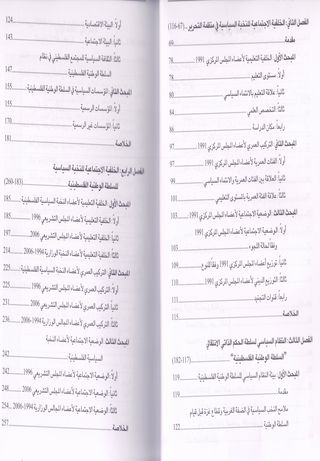 الفصل الثاني: الخلفية الاجتماعية للنخبة السياسية في منظمة التحرير... (67-116)
مقدمة 69
المبحث الأول: الخلفية التعليمية لأعضاء المجلس المركزي 1991
أولاً: مستوى التعليم 78
ثانياً: علاقة التعليم بالانتماء السياسي 80
ثالثاً: التخصص العلمي 84
رابعاً: مكان الدراسة 86
المبحث الثاني: التركيب العمري لأعضاء المجلس المركزي 1991 97
أولاً: الفئات العمرية لأعضاء المجلس المركزي 1991 97
ثانياً: العلاقة بين الفئات العمرية والانتماء السياسي 99
ثالثاً: علاقة الفئة العمرية بالمستوى التعليمي 101
المبحث الثالث: الوضعية الاجتماعية لأعضاء المجلس المركزي 103
أولاً: الوضعية الاجتماعية لأعضاء المجلس المركزي 1991
وفقا لحالة اللجوء 103
ثانياً: توزيع أعضاء المجلس المركزي 1991 وفقا للنوع 109
ثالثاً: التوزيع الديني لأعضاء المجلس المركزي 110
رابعاً: قنوات التجنيد 111
الخلاصة 115
الفصل الثالث: النظام السياسي لسلطة الحكم الذاتي الانتقالي
"السلطة الوطنية الفلسطينية" (117-182)
المبحث الأول: بيئة النظام السياسي للسلطة الوطنية الفلسطينية 119
مقدمة 119
ملامح النخب السياسية في الضفة الغربية وقطاع غزة قبل قيام
السلطة الوطنية 122
أولاً: البيئة الاقتصادية 124
ثانياً: البيئة الاجتماعية 143
ثالثاً: الثقافة السياسية للمجتمع الفلسطيني في نظام
السلطة الوطنية الفلسطينية 147
المبحث الثاني: المؤسسات السياسية في السلطة الوطنية الفلسطينية 155
أولاً: المؤسسات الرسمية 155
ثانياً: المؤسسات غير الرسمية 170
الخلاصة 181
الفصل الرابع: الخلفية الاجتماعية للنخبة السياسية
للسلطة الوطنية الفلسطينية (183-260)
المبحث الأول: الخلفية التعليمية لأعضاء النخبة السياسية الفلسطينية 195
أولاً: الخلفية التعليمية لأعضاء المجلس التشريعي 1996 195
ثانياً: الخلفية التعليمية لأعضاء المجلس التشريعي 2006
ثالثاً: الخلفية التعليمية لأعضاء المجالس الوزارية 1994-2006 214
المبحث الثاني: التركيب العمري لأعضاء النخبة السياسية الفلسطينية 225
أولاً: التركيب العمري لأعضاء المجلس التشريعي 225
ثانياً: التركيب العمري لأعضاء المجلس التشريعي 2006 231
ثالثاً: التركيب العمري لأعضاء المجالس الوزارية 1994-2006
المبحث الثالث: الوضعية الاجتماعية لأعضاء النخبة
السياسية الفلسطينية 242
أولاً: الوضعية الاجتماعية لأعضاء المجلس التشريعي 1996 242
ثانياً: الوضعية الاجتماعية لأعضاء المجلس التشريعي 2006 248
ثالثاً: الوضعية الاجتماعية لأعضاء المجالس الوزارية 1994-2006 254
الخلاصة 257